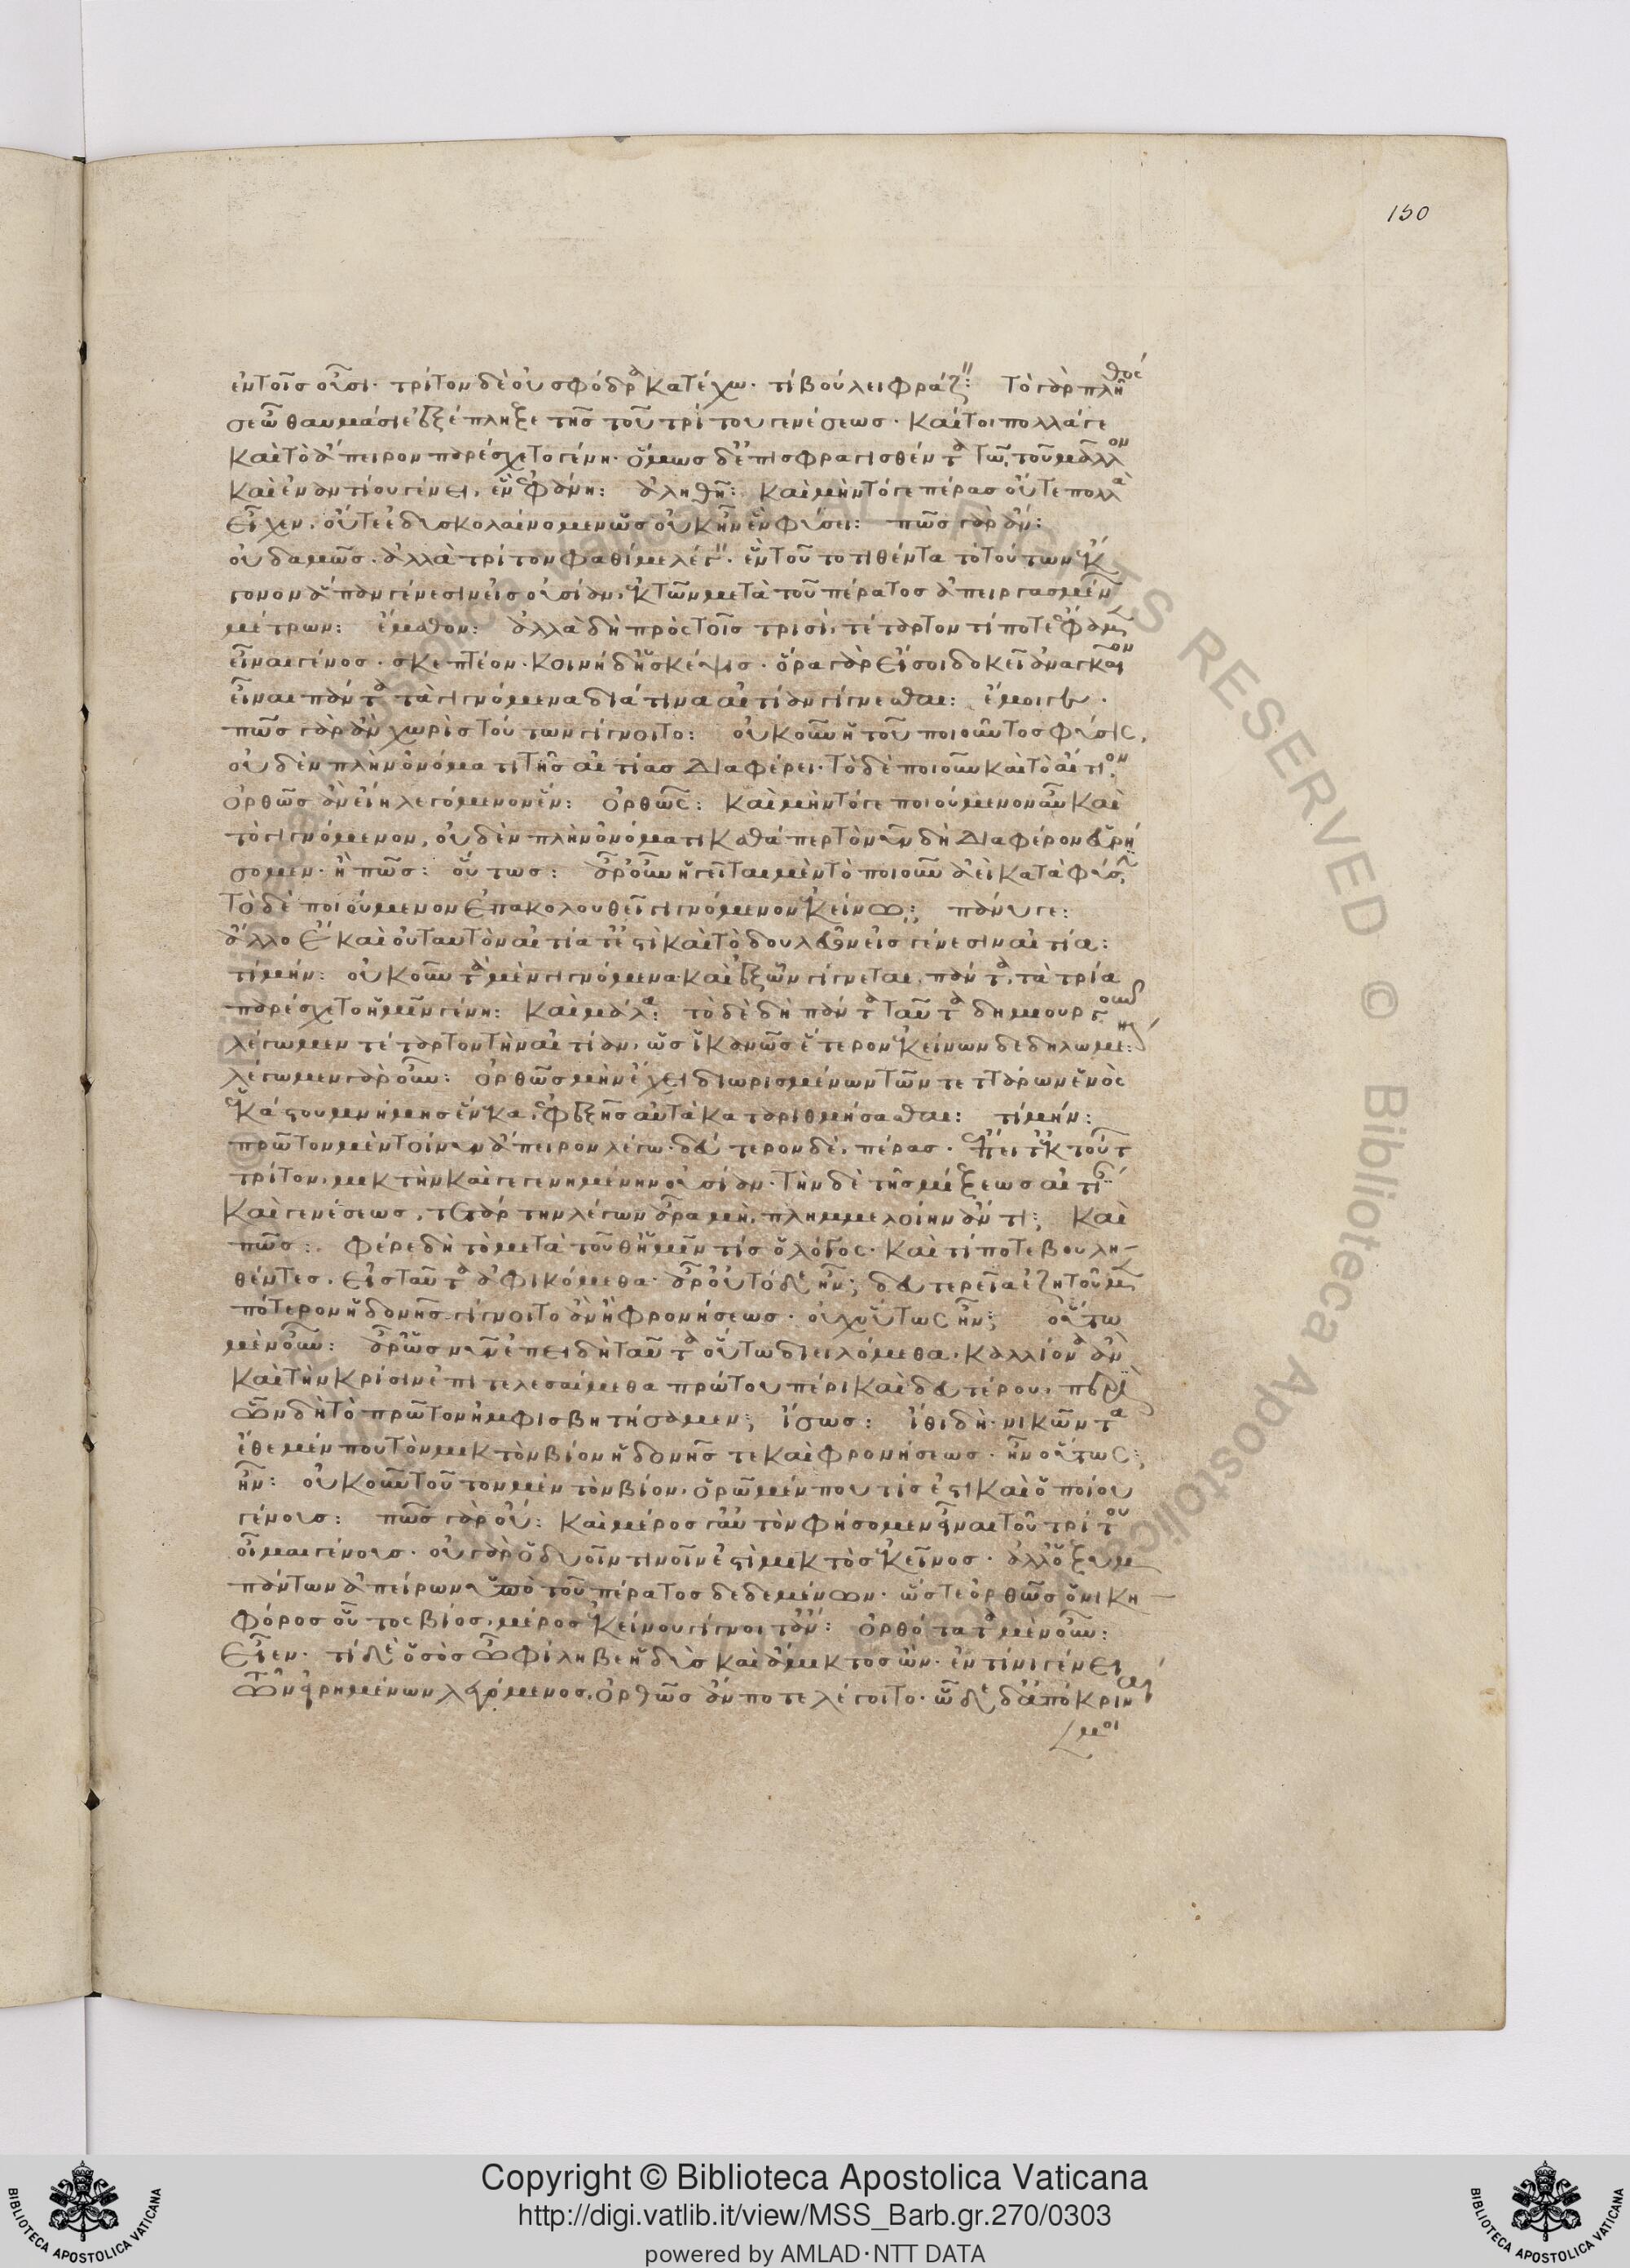 150
ἐν τοῖς οὖσι· τρίτον δὲ οὐ σφόδρα κατέχω· τί βούλει φράζειν: τὸ γὰρ πλῆθός
σε ὦ θαυμάσιε ἐξέπληξε τῆς τοῦ τρίτου γενέσεως· καίτοι πολλά γε
καὶ τὸ ἄπειρον παρέσχετο γένη· ὅμως δ' ἐπισφραγισθέντα τῷ τοῦ μᾶλλον
καὶ ἐναντίου γένει, ἓν ἐφάνη: ἀληθῆ: καὶ μὴν τό γε πέρας οὔτε πολλὰ
εἶχεν, οὔτε ἐδυσκολαίνομεν ὡς οὐκ ἦν ἓν φύσει: πῶς γὰρ ἄν:
οὐδαμῶς· ἀλλὰ τρίτον φάθι με λέγειν· ἓν τοῦτο τιθέντα τὸ τούτων ἔκ
γονον ἅπαν γένεσιν εἰς οὐσίαν, ἐκ τῶν μετὰ τοῦ πέρατος ἀπειργασμένων
μέτρων: ἔμαθον: ἀλλὰ δὴ πρὸς τοῖς τρισὶ, τέταρτον τί ποτε ἔφαμεν
εἶναι γένος· σκεπτέον· κοινὴ δ' ἡ σκέψις· ὅρα γὰρ εἴ σοι δοκεῖ ἀναγκαῖον
εἶναι πάντα τὰ γιγνόμενα διά τινα αἰτίαν γίγνεσθαι: ἔμοιγε·
πῶς γὰρ ἂν χωρὶς τούτων γίγνοιτο: οὐκοῦν ἡ τοῦ ποιοῦντος φύσις,
οὐδὲν πλὴν ὀνόματι τῆς αἰτίας διαφέρει· τὸ δὲ ποιοῦν καὶ τὸ αἴτιον
ὀρθῶς ἂν εἴη λεγόμενον ἕν: ὀρθῶς: καὶ μὴν τό γε ποιούμενον αὖ καὶ
τὸ γιγνόμενον, οὐδὲν πλὴν ὀνόματι καθάπερ τὸ νῦν δὴ διαφέρον εὑρή
σομεν· ἢ πῶς: οὕτως: ἆρ' οὖν ἡγεῖται μὲν τὸ ποιοῦν ἀεὶ κατὰ φύσιν,
τὸ δὲ ποιούμενον ἐπακολουθεῖ γιγνόμενον ἐκείνω; πάνυ γε:
ἄλλο ἄρα καὶ οὐ ταυτὸν αἰτία τ' ἐστὶ καὶ τὸ δουλεῦον εἰς γένεσιν αἰτία:
τί μήν: οὐκοῦν τὰ μὲν γιγνόμενα καὶ ἐξ ὧν γίγνεται, πάντα, τὰ τρία
παρέσχετο ἡμῖν γένη: καὶ μάλα: τὸ δὲ δὴ πάντα ταῦτα δημιουργοῦν
λέγωμεν τέταρτον τὴν αἰτίαν, ὡς ἱκανῶς ἕτερον ἐκείνων δεδηλωμένην:
λέγωμεν γὰρ οὖν: ὀρθῶς μὴν ἔχει διωρισμένων τῶν τεττάρων ἑνὸς
ἑκάστου μνήμης ἕνεκα, ἐφεξῆς αὐτὰ καταριθμήσασθαι: τί μήν:
πρῶτον μὲν τοίνυν ἄπειρον λέγω· δεύτερον δὲ, πέρας· ἔπειτ' ἐκ τούτων
τρίτον, μικτὴν καὶ γεγενημένην οὐσίαν· τὴν δὲ τῆς μίξεως αἰτίαν
καὶ γενέσεως, τετάρτην λέγων ἆρα μὴ, πλημμελοίην ἄν τι; καὶ
πῶς: φέρε δὴ τὸ μετὰ τοῦθ' ἡμῖν τίς ὁ λόγος· καὶ τί ποτε βουλη
θέντες, εἰς ταῦτα ἀφικόμεθα· ἆρ' οὐ τόδ' ἦν; δευτερεῖα ἐζητοῦμεν
πότερον ἡδονῆς γίγνοιτο ἂν ἢ φρονήσεως· οὐχ οὕτως ἦν; οὕτω
μὲν οὖν: ἆρ' ὡς νῦν ἐπειδὴ ταῦτα οὕτω διειλόμεθα, κάλλιον ἂν
καὶ τὴν κρίσιν ἐπιτελεσαίμεθα πρώτου πέρι καὶ δευτέρου, περὶ
ὧν δὴ τὸ πρῶτον ἠμφισβητήσαμεν; ἴσως: ἴθι δὴ· νικῶντα
ἔθεμέν που τὸν μικτὸν βίον ἡδονῆς τε καὶ φρονήσεως· ἦν οὕτως;
ἦν: οὐκοῦν τοῦτον μὲν τὸν βίον, ὁρῶμέν που τίς ἐστι καὶ ὁποίου
γένους: πῶς γὰρ οὔ: καὶ μέρος γ' αὐτὸν φήσομεν εἶναι τοῦ τρίτου
οἶμαι γένους· οὐ γὰρ ὁ δυοῖν τινοῖν ἐστὶ μικτὸς ἐκεῖνος· ἀλλ' ὁ ξυμ
πάντων ἀπείρων ὑπὸ τοῦ πέρατος δεδεμένων· ὥστε ὀρθῶς ὁ νικη
φόρος οὗτος βίος, μέρος ἐκείνου γίγνοιτ' ἄν: ὀρθότατα μὲν οὖν:
εἶεν· τί δὲ ὁ σὸς ὦ φίληβε ἡδὺς καὶ ἄμικτος ὤν· ἐν τίνι γένει
τῶν εἰρημένων λεγόμενος, ὀρθῶς ἄν ποτε λέγοιτο· ὧδε δ' ἀπόκριναί
μοι
BIBLIOTECA APOSTOLICA VATICANA
Copyright © Biblioteca Apostolica Vaticana
http://digi.vatlib.it/view/MSS_Barb.gr.270/0303
powered by AMLAD·NTT DATA
BIBLIOTECA APOSTOLICA VATICANA